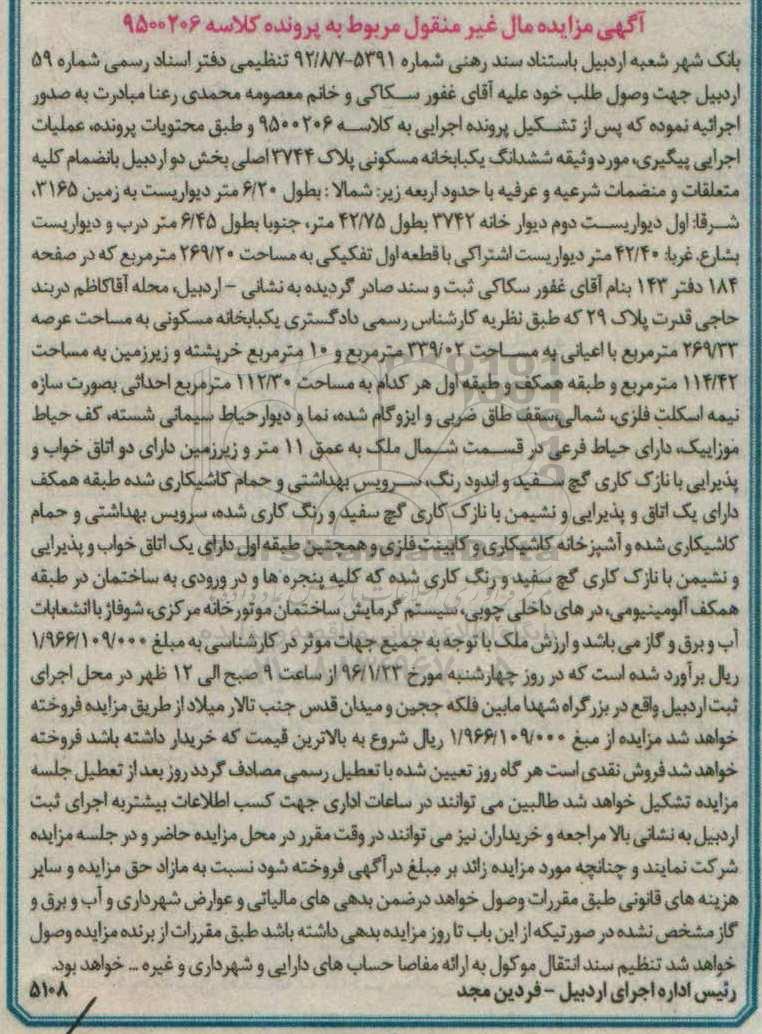 آگهی مزایده مال غیر منقول مربوط به پرونده کلاسه ۹۵۰۰۲۰۶
بانک شهر شعبه اردبیل باستناد سند رهنی شماره ۵۳۹۱-۹۲/۸/۷ تنظیمی دفتر اسناد رسمی شماره ۵۹
اردبیل جهت وصول طلب خود علیه آقای غفور سکاکی و خانم معصومه محمدی رعنا مبادرت به صدور
اجرائیه نموده که پس از تشکیل پرونده اجرایی به کلاسه ۹۵۰۰۲۰۶ و طبق محتویات پرونده، عملیات
اجرایی پیگیری، مورد وثیقه ششدانگ یکبابخانه مسکونی پلاک ۳۷۴۴ اصلی بخش دو اردبیل بانضمام کلیه
متعلقات و منضمات شرعیه و عرفیه با حدود اربعه زیر: شمالا : بطول ۶/۲۰ متر دیواریست به زمین ۳۱۶۵،
شرقا: اول دیواریست دوم دیوار خانه ۳۷۴۲ بطول ۴۲/۷۵ متر، جنوبا بطول ۶/۴۵ متر درب و دیواریست
بشارع. غربا: ۴۲/۴۰ متر دیواریست اشتراکی با قطعه اول تفکیکی به مساحت ۲۶۹/۲۰ مترمربع که در صفحه
۱۸۴ دفتر ۱۴۳ بنام آقای غفور سکاکی ثبت و سند صادر گردیده به نشانی - اردبیل، محله آقاکاظم دربند
حاجی قدرت پلاک ۲۹ که طبق نظریه کارشناس رسمی دادگستری یکبابخانه مسکونی به مساحت عرصه
۲۶۹/۳۳ مترمربع با اعیانی به مساحت ۳۳۹/۰۲ مترمربع و ۱۰ مترمربع خرپشته و زیرزمین به مساحت
۱۱۴/۴۲ مترمربع و طبقه همکف و طبقه اول هر کدام به مساحت ۱۱۲/۳۰ مترمربع احداثی بصورت سازه
نیمه اسکلت فلزی، شمالی سقف طاق ضربی و ایزوگام شده، نما و دیوار حیاط سیمانی شسته، کف حیاط
موزاییک، دارای حیاط فرعی در قسمت شمال ملک به عمق ۱۱ متر و زیرزمین دارای دو اتاق خواب و
پذیرایی با نازک کاری گچ سفید و اندود رنگ، سرویس بهداشتی و حمام کاشیکاری شده طبقه همکف
دارای یک اتاق و پذیرایی و نشیمن با نازک کاری گچ سفید و رنگ کاری شده، سرویس بهداشتی و حمام
کاشیکاری شده و آشپزخانه کاشیکاری و کابینت فلزی و همچنین طبقه اول دارای یک اتاق خواب و پذیرایی
و نشیمن با نازک کاری گچ سفید و رنگ کاری شده که کلیه پنجره ها و در ورودی به ساختمان در طبقه
همکف آلومینیومی، در های داخلی چوبی، سیستم گرمایش ساختمان موتورخانه مرکزی، شوفاژ با انشعابات
آب و برق و گاز می باشد و ارزش ملک با توجه به جمیع جهات موثر در کارشناسی به مبلغ ۱/۹۶۶/۱۰۹/۰۰۰
ریال برآورد شده است که در روز چهارشنبه مورخ ۹۶/۱/۲۳ از ساعت ۹ صبح الی ۱۲ ظهر در محل اجرای
ثبت اردبیل واقع در بزرگراه شهدا مابین فلکه ججین و میدان قدس جنب تالار میلاد از طریق مزایده فروخته
خواهد شد مزایده از مبغ ۱/۹۶۶/۱۰۹/۰۰۰ ریال شروع به بالاترین قیمت که خریدار داشته باشد فروخته
خواهد شد فروش نقدی است هر گاه روز تعیین شده با تعطیل رسمی مصادف گردد روز بعد از تعطیل جلسه
مزایده تشکیل خواهد شد طالبین می توانند در ساعات اداری جهت کسب اطلاعات بیشتربه اجرای ثبت
اردبیل به نشانی بالا مراجعه و خریداران نیز می توانند در وقت مقرر در محل مزایده حاضر و در جلسه مزایده
شرکت نمایند و چنانچه مورد مزایده زائد بر مبلغ درآگهی فروخته شود نسبت به مازاد حق مزایده و سایر
هزینه های قانونی طبق مقررات وصول خواهد درضمن بدهی های مالیاتی و عوارض شهرداری و آب و برق و
گاز مشخص نشده در صورتیکه از این باب تا روز مزایده بدهی داشته باشد طبق مقررات از برنده مزایده وصول
خواهد شد تنظیم سند انتقال موکول به ارائه مفاصا حساب های دارایی و شهرداری و غیره ... خواهد بود.
رئیس اداره اجرای اردبیل - فردین مجد
۵۱۰۸